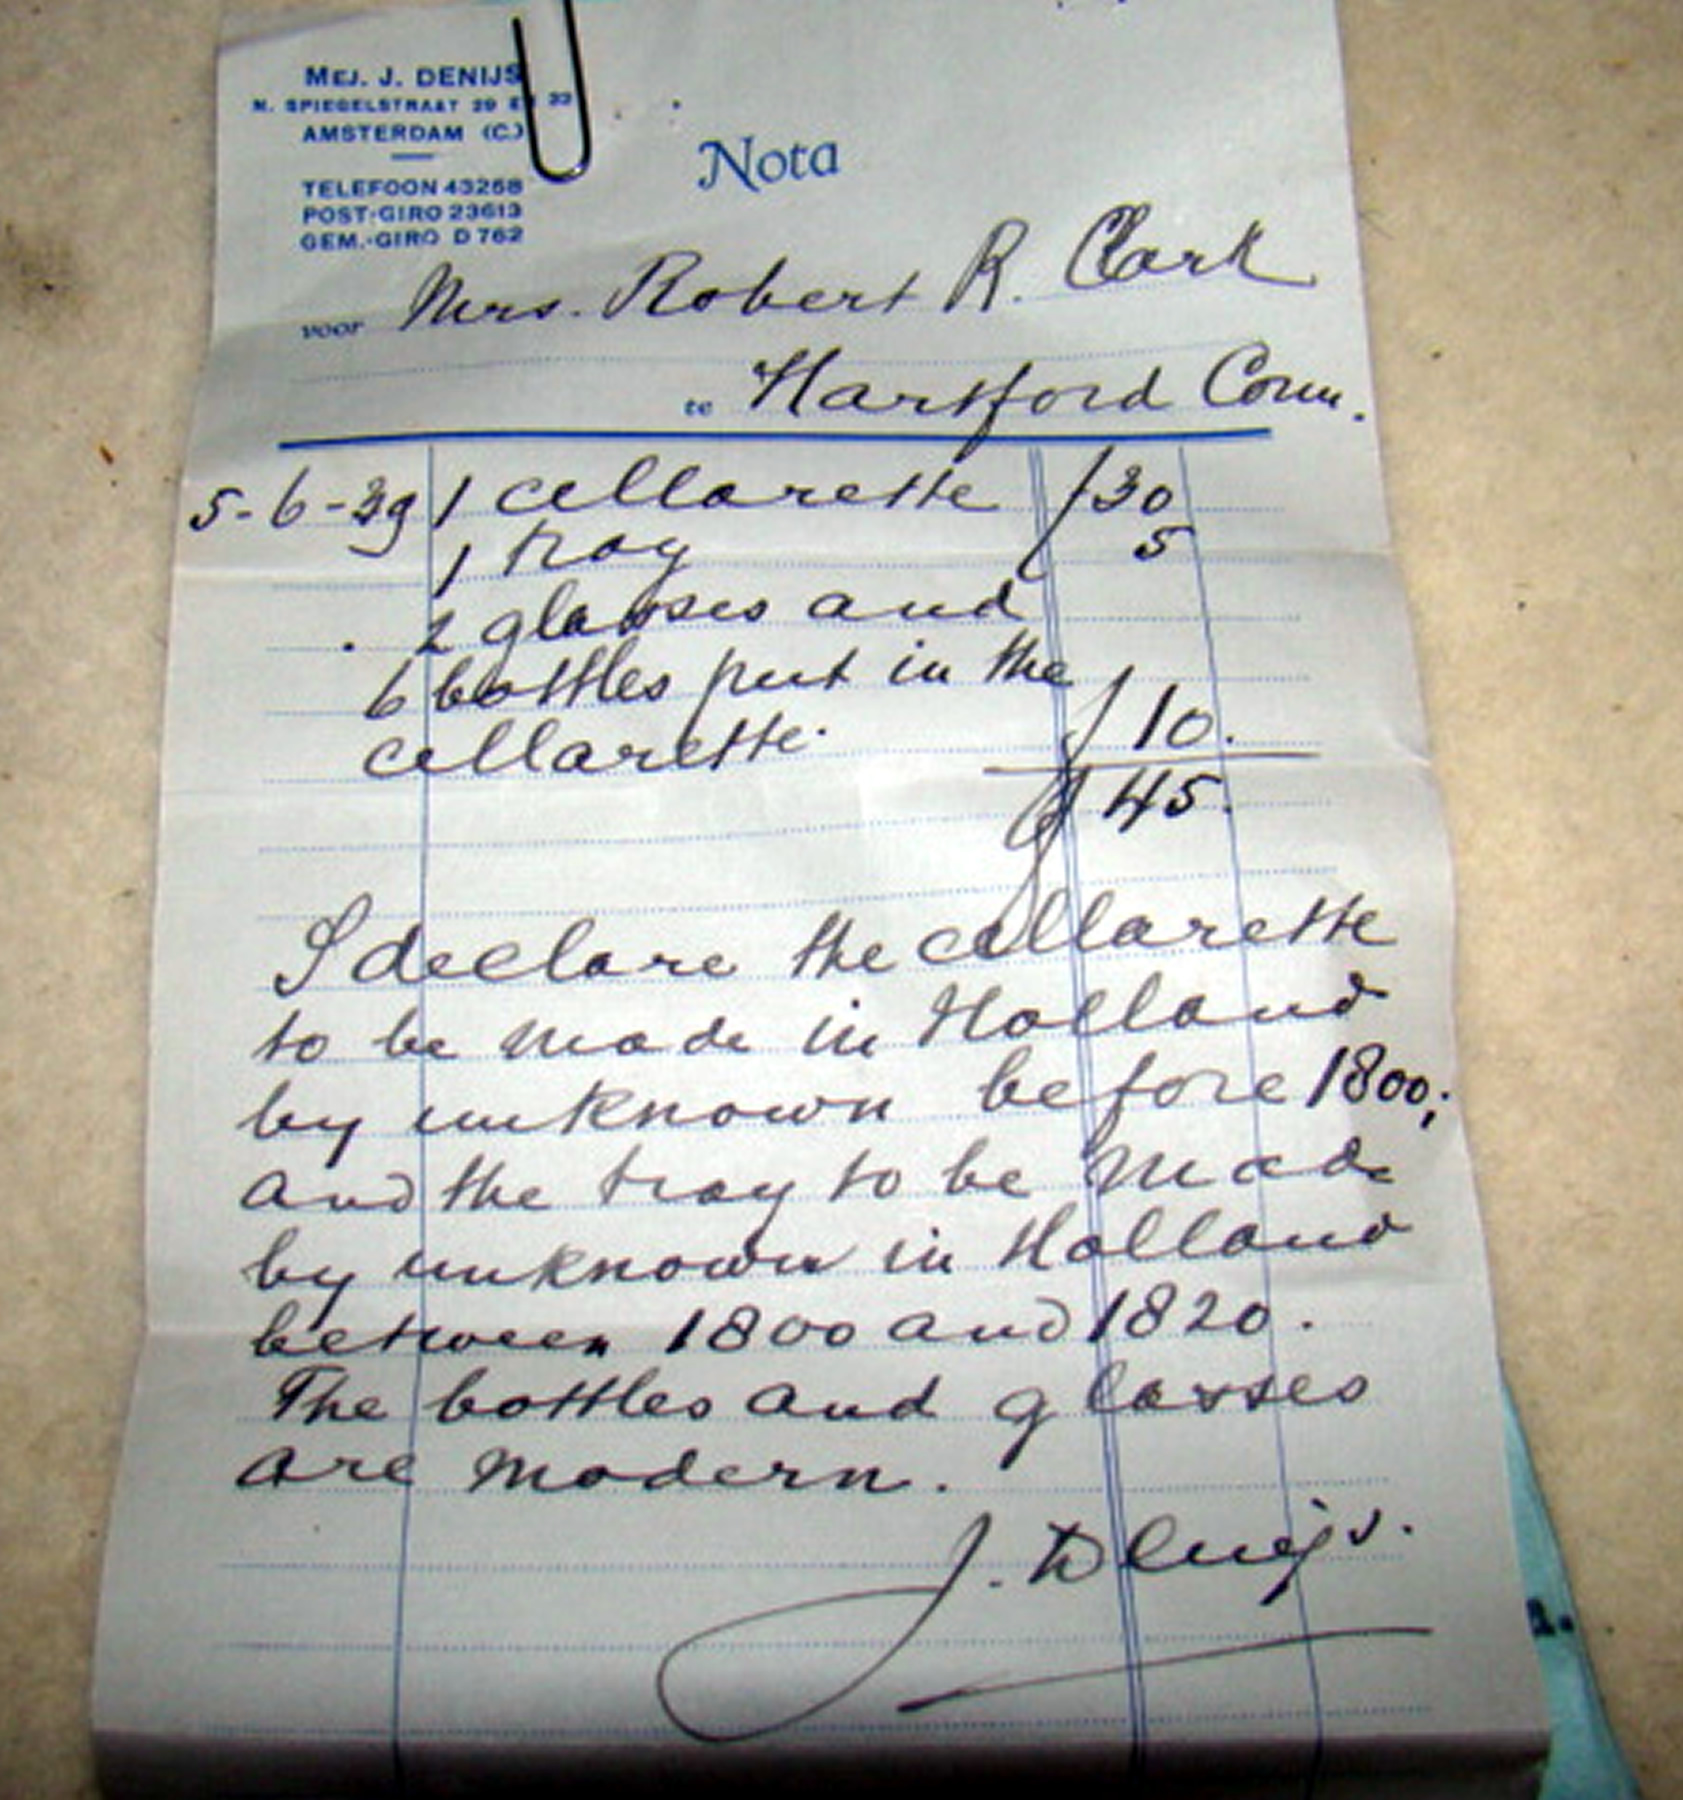 MEJ. J. DENIJS
N. SPIEGELSTRAAT 29 EN 32
AMSTERDAM (C.)
TELEFOON 43258
POST-GIRO 23613
GEM.-GIRO D 762
Nota
voor Mrs. Robert R. Clark
te Hartford Conn.
5-6-39 1 cellarette f 30
1 tray 5
2 glasses and
6 bottles put in the
cellarette. f 10.
f 45.
I declare the cellarette
to be made in Holland
by unknown before 1800;
and the tray to be made
by unknown in Holland
between 1800 and 1820.
The bottles and glasses
are modern.
J. Denijs.